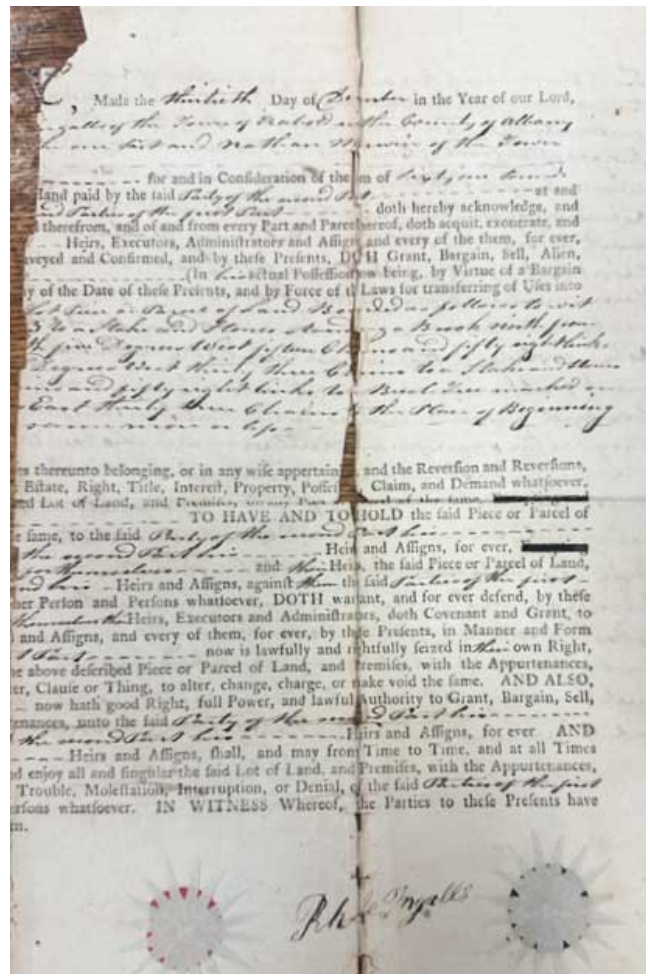 Made the thirtieth Day of December in the Year of our Lord,
Ingalls of the Town of in the County of Albany
one Part and Nathan of the Town
for and in Consideration of the m of Sixty one
Hand paid by the said Party of the second Part at and
Parties of the first Part doth hereby acknowledge, and
therefrom, and of and from every Part and Parcel hereof, doth acquit, exonerate, and
Heirs, Executors, Administrators and Assigns and every of the them, for ever,
veyed and Confirmed, and by these Presents, DOTH Grant, Bargain, Sell, Alien,
(In his actual Possession now being, by Virtue of a Bargain
y of the Date of these Presents, and by Force of the Laws for transferring of Uses into
or Parcel of Land Bounded as follows to wit
3 To a Stake and Stones a Brook north four
five Degrees West fifteen Chains and fifty eight links
Degrees West thirty three Chains to a Stake and Stones
and fifty eight links to a Tree marked
East thirty three Chains the Place of Beginning
more or less
es thereunto belonging, or in any wise appertaining, and the Reversion and Reversions,
Estate, Right, Title, Interest, Property, Possession, Claim, and Demand whatsoever,
ed Lot of Land, and of the same,
TO HAVE AND TO HOLD the said Piece or Parcel of
e same, to the said Party of the second Part his
the second Part his Heirs and Assigns, for ever,
for themselves and their Heirs, the said Piece or Parcel of Land,
and his Heirs and Assigns, against them the said Parties of the first
her Person and Persons whatsoever, DOTH warrant, and for ever defend, by these
themselves Heirs, Executors and Administrators, doth Covenant and Grant, to
and Assigns, and every of them, for ever, by these Presents, in Manner and Form
Part now is lawfully and rightfully seized in their own Right,
he above described Piece or Parcel of Land, and Premises, with the Appurtenances,
er, Clause or Thing, to alter, change, charge, or make void the same. AND ALSO,
now hath good Right, full Power, and lawful Authority to Grant, Bargain, Sell,
enances, unto the said Party of the second Part his
the second Part his Heirs and Assigns, for ever AND
Heirs and Assigns, shall, and may from Time to Time, and at all Times
d enjoy all and singular the said Lot of Land, and Premises, with the Appurtenances,
Trouble, Molestation, Interruption, or Denial, of the said Parties of the first
ersons whatsoever. IN WITNESS Whereof, the Parties to these Presents have
en.
Ingalls